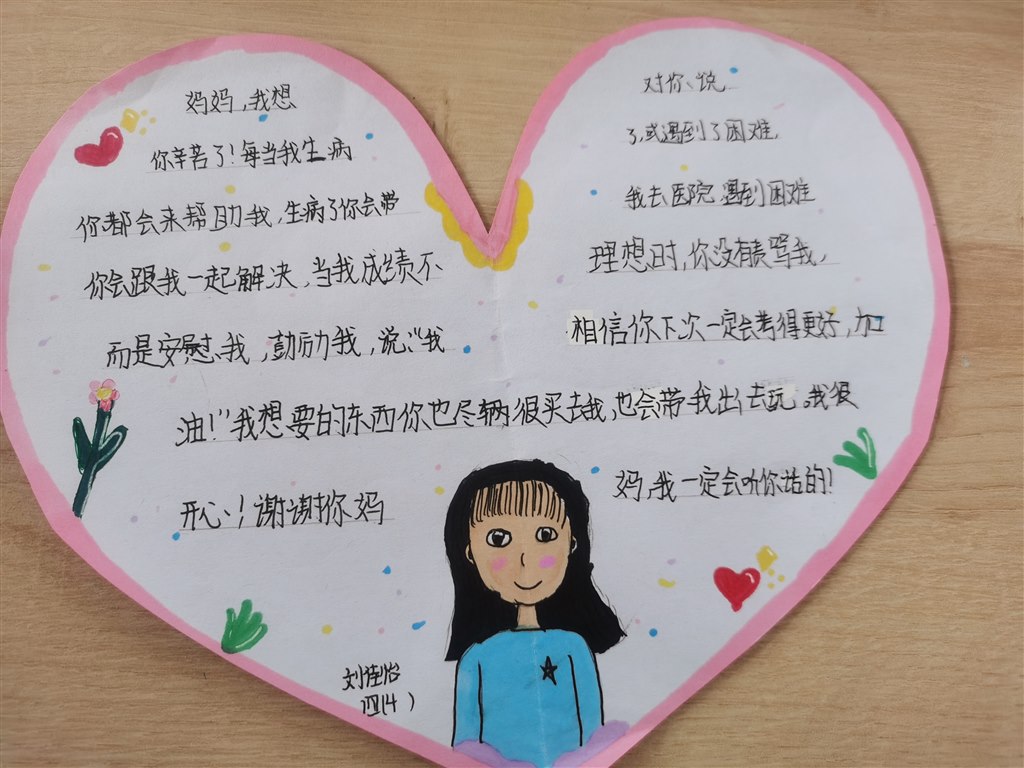 妈妈，我想对你说
你辛苦了！每当我生病了，或遇到了困难，
你都会来帮助我，生病了你会带我去医院遇到困难
你会跟我一起解决，当我成绩不理想时，你没有责骂我，
而是安慰我，鼓励我，说：“我相信你下次一定会考得更好，加
油！”我想要的东西你也尽量很买去我，也会带我出去玩。我很
开心！谢谢你妈妈，我一定会听你话的！
刘佳怡
四(4)